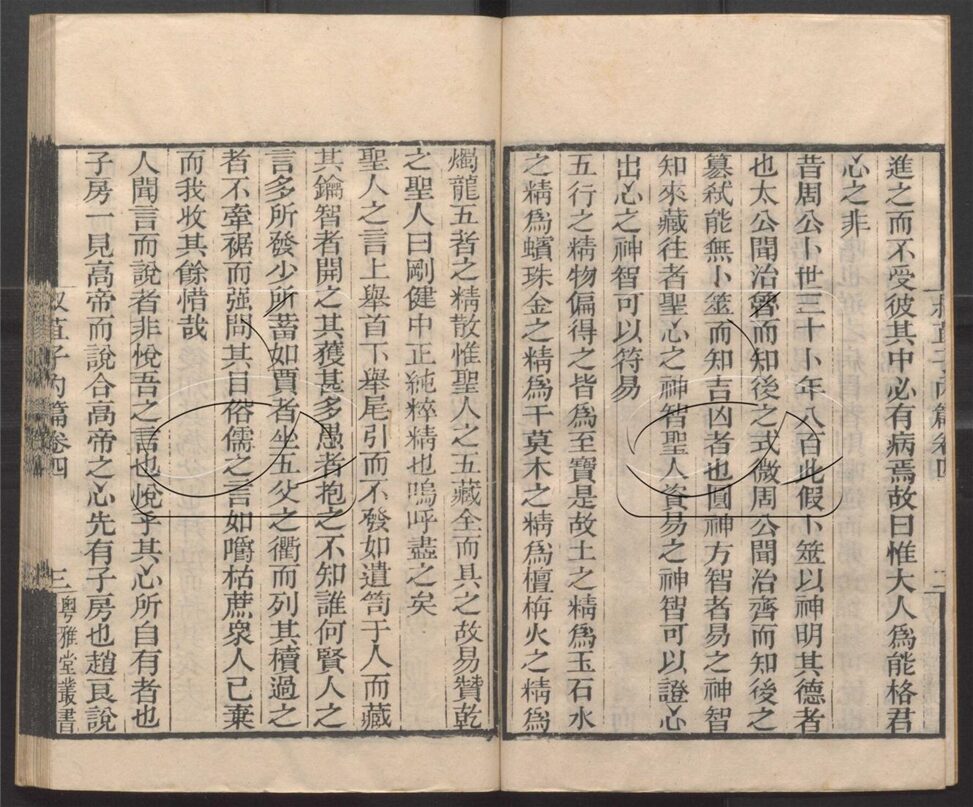 進之而不受彼其中必有病焉故曰惟大人爲能格君
心之非
昔周公卜世三十卜年八百此假卜筮以神明其德者
也太公聞治魯而知後之式微周公聞治齊而知後之
篡弑能無卜筮而知吉凶者也圓神方智者易之神智
知來藏往者聖心之神智聖人資易之神智可以證心
出心之神智可以符易
五行之精物偏得之皆爲至寶是故土之精爲玉石水
之精爲蠙珠金之精爲干莫木之精爲檀栴火之精爲
燭龍五者之精散惟聖人之五藏全而具之故易贊乾
之聖人曰剛健中正純粹精也嗚呼盡之矣
聖人之言上舉首下舉尾引而不發如遺笥于人而藏
其鑰智者開之其獲甚多愚者抱之不知誰何賢人之
言多所發少所蓄如賈者坐五父之衢而列其櫝過之
者不牽裾而强問其目俗儒之言如嚼枯蔗衆人已棄
而我收其餘惜哉
人聞言而說者非悅吾之言也悅乎其心所自有者也
子房一見高帝而說合高帝之心先有子房也趙良說
叔苴子內篇卷四
二
叔苴子內篇卷四
三
粵雅堂叢書